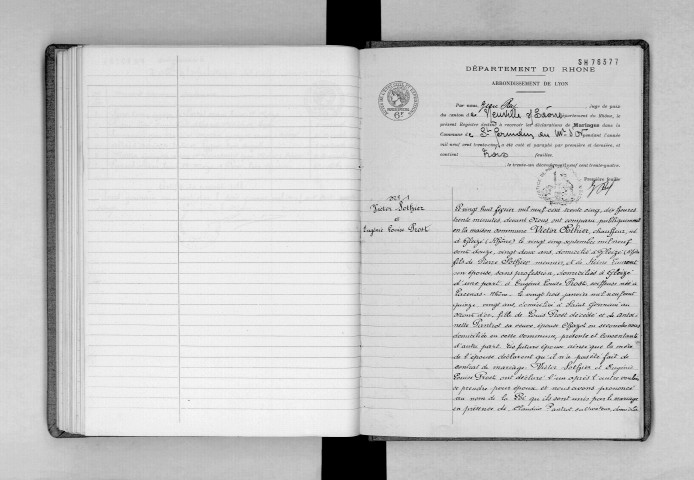 SH76377
DÉPARTEMENT DU RHÔNE
ARRONDISSEMENT DE LYON
Par nous, Jean Rey, juge de paix
du canton de Neuville s/ Saône, département du Rhône, le
présent Registre destiné à recevoir les déclarations de Mariages dans la
Commune de St Germain au Mt d'Or pendant l'année
mil neuf cent trente-cinq, a été coté et paraphé par première et dernière, et
contient trois feuilles.
Le trente-un décembre mil neuf cent trente-quatre.
Première feuille
N° 1
Victor Sothier
et
Eugénie Louise Prost
Le vingt huit février mil neuf cent trente cinq, dix heures
trente minutes, devant Nous ont comparu publiquement
en la maison commune Victor Sothier, chauffeur, né
à Gleizé (Rhône) le vingt cinq septembre mil neuf
cent douze, vingt deux ans, domicilié à Gleizé (Rhône)
fils de Pierre Sothier meunier, et de Laurent
son épouse, sans profession, domiciliés à Gleizé
d'une part, & Eugénie Louise Prost, coiffeuse née à
Lacenas Rhône le vingt trois janvier mil neuf cent
quinze, vingt ans, domiciliée à Saint Germain au
Mont d'or, fille de Louis Prost décédé et de Antoi-
nette sa veuve, épouse en secondes noces
domiciliée en cette commune, présente et consentante
d'autre part. Les futurs époux ainsi que la mère
de l'épouse déclarent qu'il n'a pas été fait de
contrat de mariage. Victor Sothier et Eugénie
Louise Prost ont déclaré l'un après l'autre vouloir
se prendre pour époux et nous avons prononcé
au nom de la Loi qu'ils sont unis par le mariage
en présence de Claudius cultivateur,